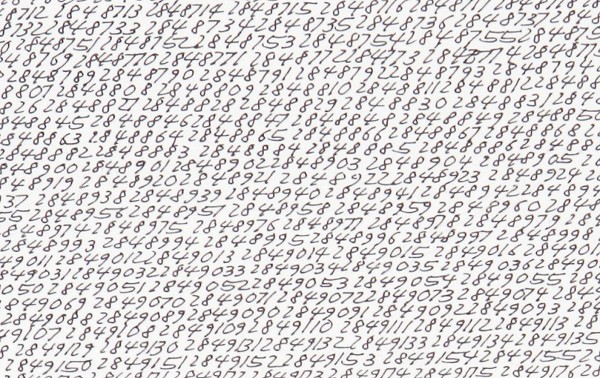 8712 2848713 2848714 2848715 2848716
32 2848733 2848734 2848735 2848736
2848751 2848752 2848753 2848754 2848755
2848770 2848771 2848772 2848773 2848774
2848789 2848790 2848791 2848792 2848793 2848794
8807 2848808 2848809 2848810 2848811 2848812
26 2848827 2848828 2848829 2848830 2848831 2848
2848845 2848846 2848847 2848848 2848849
2848863 2848864 2848865 2848866 2848867 2848868
2848882 2848883 2848884 2848885 2848886
2848900 2848901 2848902 2848903 2848904 2848905
48919 2848920 2848921 2848922 2848923 2848924
37 2848938 2848939 2848940 2848941 2848942 284
55 2848956 2848957 2848958 2848959 2848960
2848974 2848975 2848976 2848977 2848978 2848979
2848993 2848994 2848995 2848996 2848997 2848998
49011 2849012 2849013 2849014 2849015 2849016
2849031 2849032 2849033 2849034 2849035 2849036
050 2849051 2849052 2849053 2849054 2849055 2849
2849069 2849070 2849071 2849072 2849073 2849074
2849088 2849089 2849090 2849091 2849092 2849093
49107 2849108 2849109 2849110 2849111 2849112 2849113
2849129 2849130 2849131 2849132 2849133 2849134 2849135
2849150 2849151 2849152 2849153 2849154 2849155
2849171 2849172 2849173 2849174 2849175 2849176